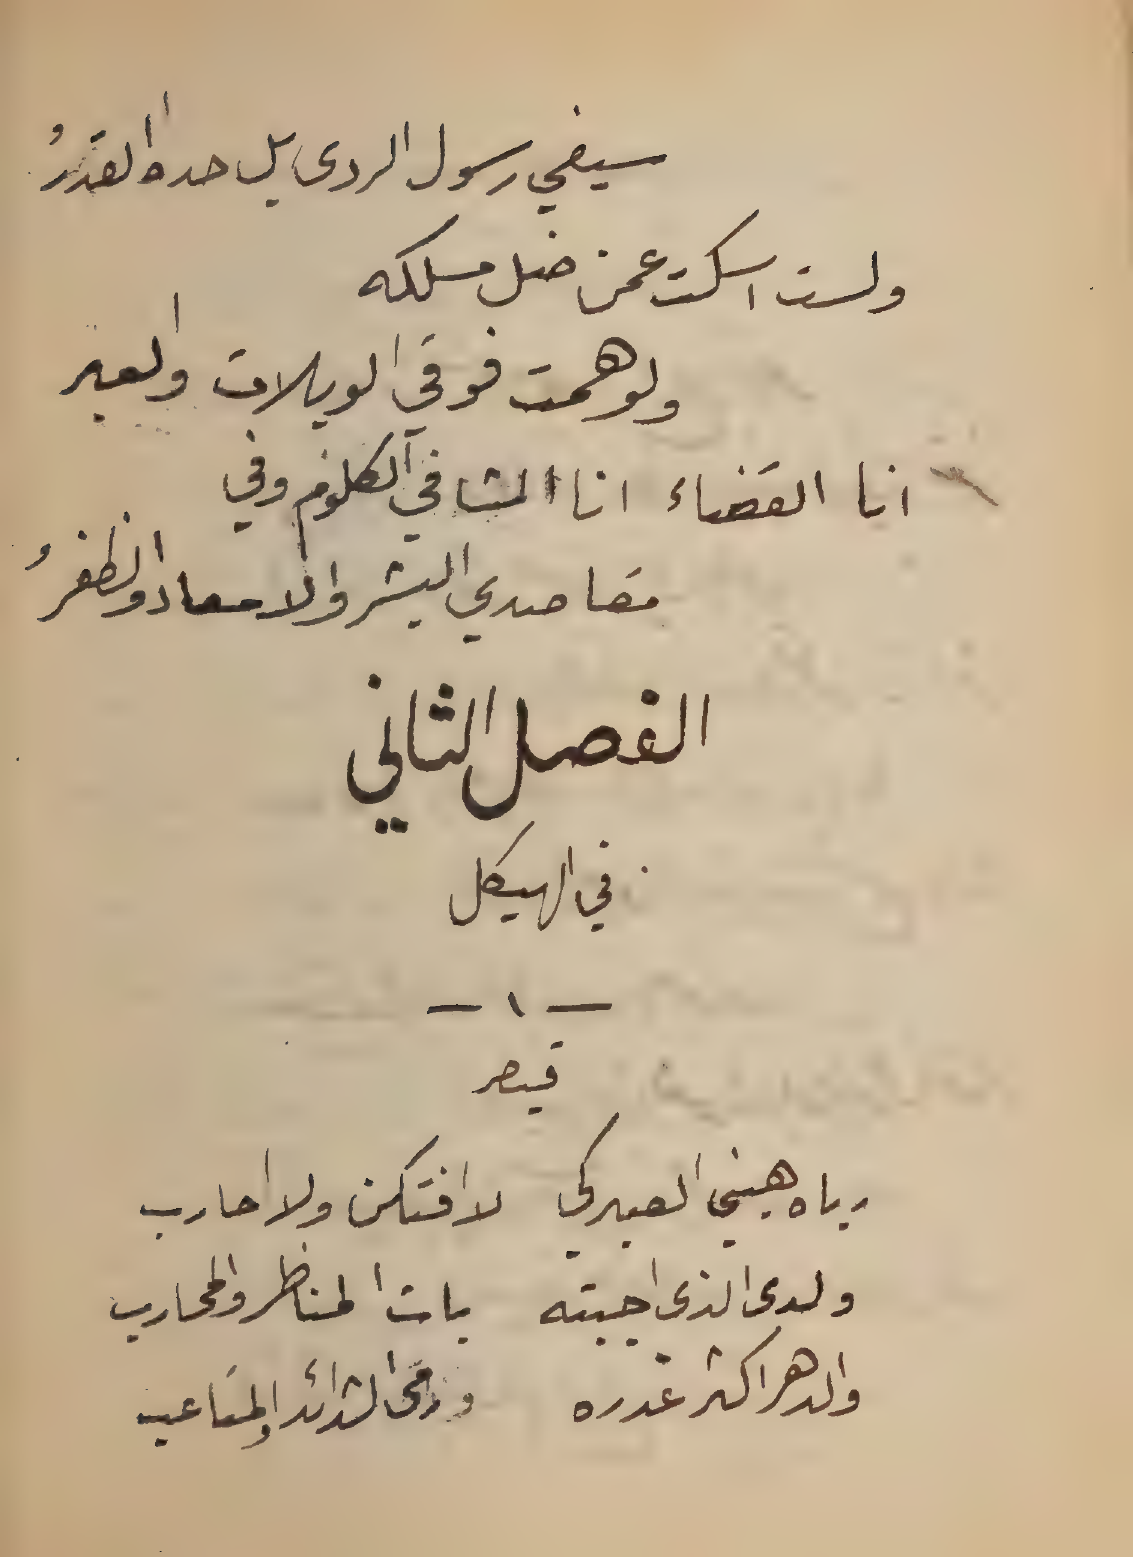 سيفي رسول الردى بل حده القدرُ
ولست اسكت عمن ضل مسلكه
ولو همت فوقي الويلات والعبر
انا القضاء انا الشافي الكلوم وفي
مقاصدي البشر والاسعاد والظفرُ
الفصل الثاني
في الهيكل
— ١ —
قيصر
رباه هبني الصبر كي لا افتكن ولا احارب
ولدى الذي احببته بات المناظر والمحارب
والدهر اكثر غدره الشدائد والمتاعب